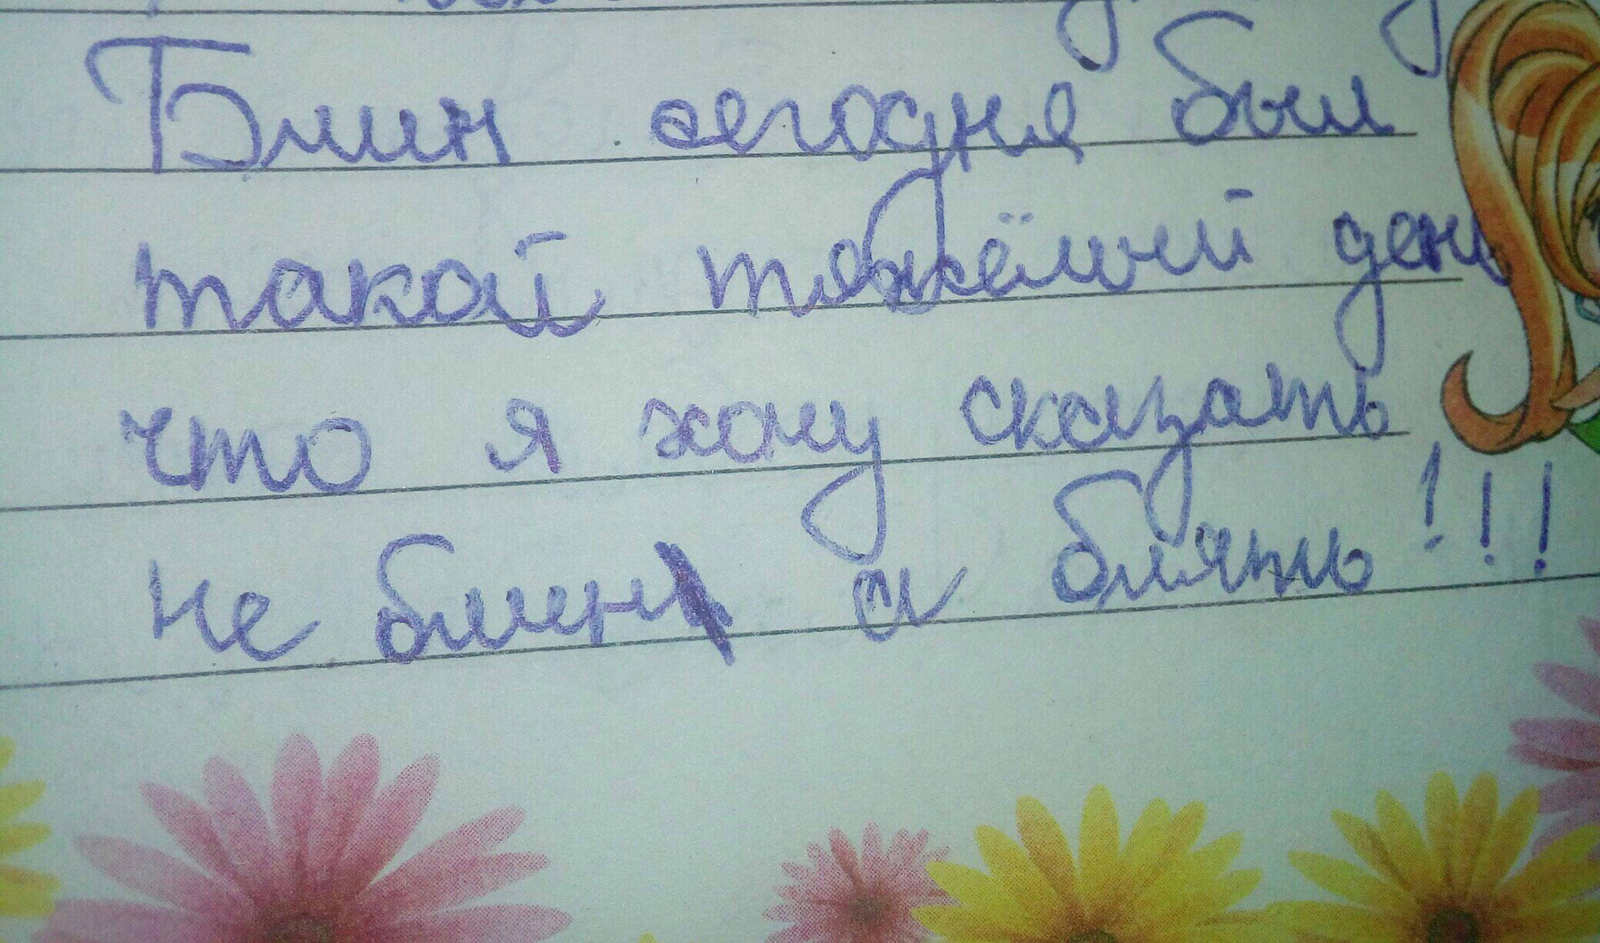 Блин сегодня был
такой тяжёлый день
что я хочу сказать
не блин а блять!!!